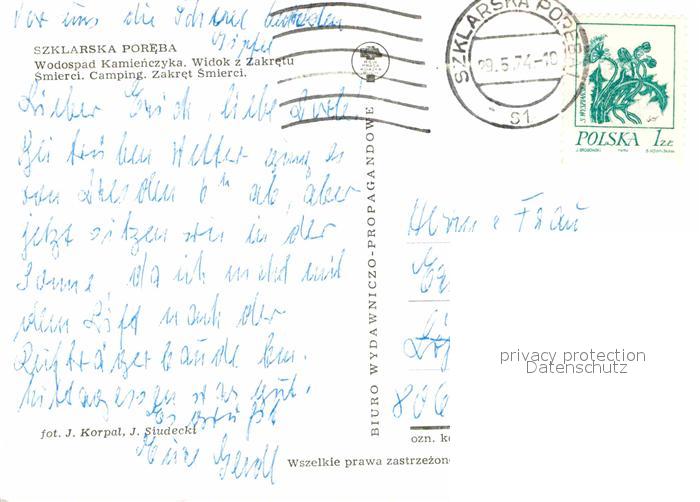 Vor uns die Schneekoppe
Gipfel
SZKLARSKA PORĘBA
Wodospad Kamieńczyka. Widok z Zakrętu
Śmierci. Camping. Zakręt Śmierci.
Lieber
liebe
Bei trüben Wetter ging es
von Dresden 6 ab, aber
jetzt sitzen wir in der
Sonne, da ich nicht mit
dem Lift nach der
Reifträgerbaude bin.
Mittagessen war gut.
Es grüßt
fot. J. Korpal, J. Siudecki
BIURO WYDAWNICZO-PROPAGANDOWE
Wszelkie prawa zastrzeżon
SZKLARSKA PORĘBA
29.5.74-10
S1
POLSKA 1 ZŁ
Herrn & Frau
806
privacy protection
Datenschutz